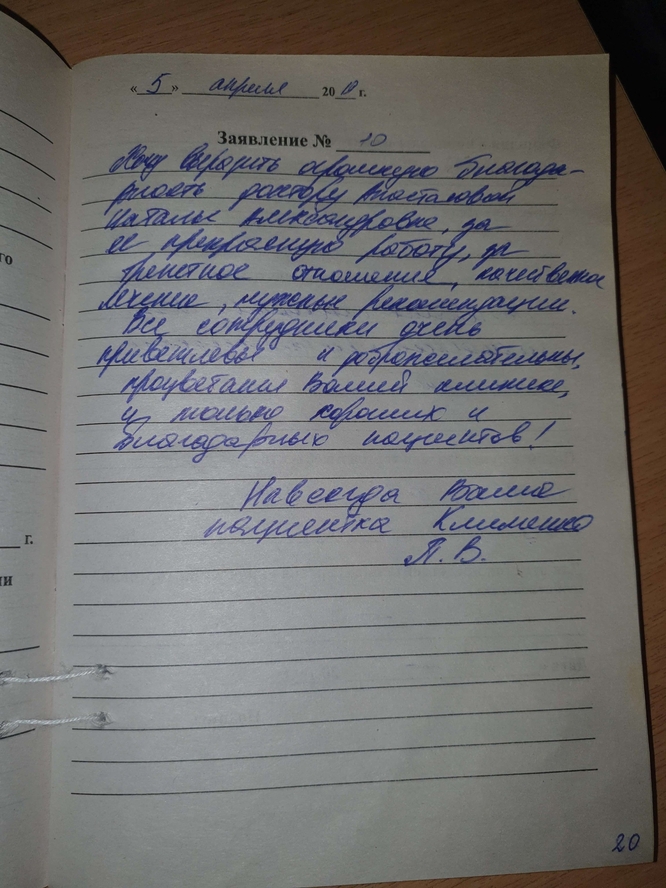 « 5 » апреля 20 г.
Заявление № 10
Хочу выразить огромную благода-
рность доктору
Наталье Александровне, за
ее прекрасную работу, за
трепетное отношение, качественное
лечение, нужные рекомендации.
Все сотрудники очень
приветливы и доброжелательны,
процветания Вашей клинике,
и только хороших и
благодарных пациентов!
Навсегда Ваша
пациентка Клименко
Л. В.
го
г.
ии
20